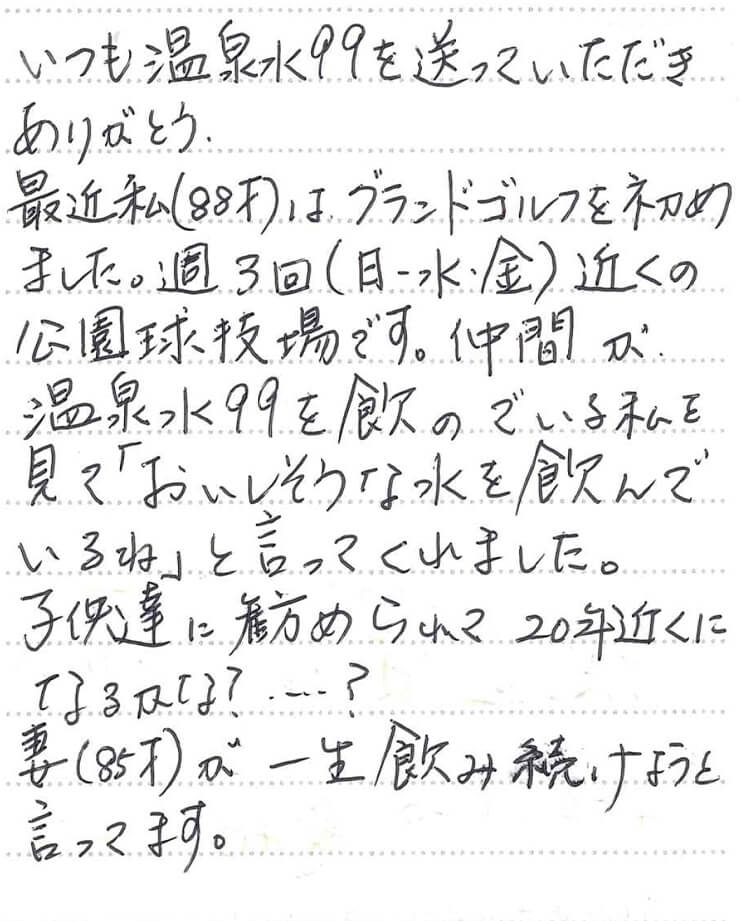 いつも温泉水99を送っていただき
ありがとう.
最近私(88才)は.グランドゴルフを初め
ました。週3回(日-水・金)近くの
公園球技場です。仲間が.
温泉水99を飲のでいる私を
見て「おいしそうな水を飲んで
いるね」と言ってくれました。
子供達に勧められて20年近くに
なるかな?.….?
妻(85才)が一生飲み続けようと
言ってます。